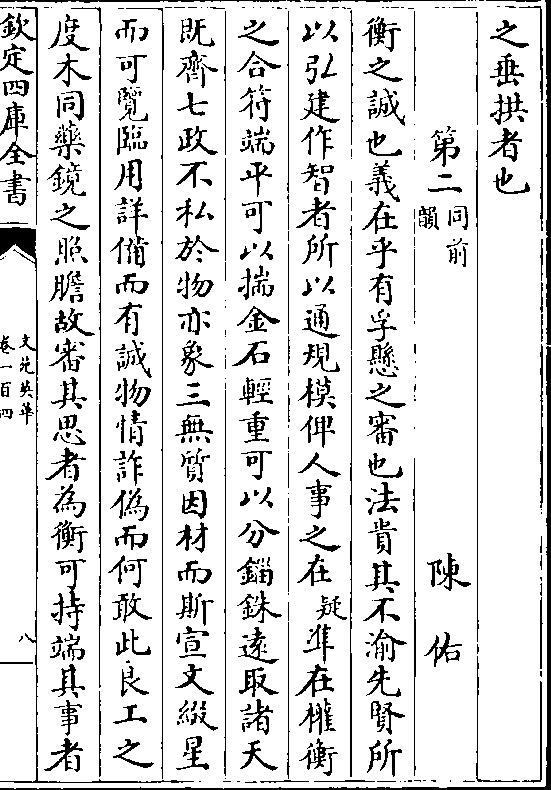 之垂拱者也
第二 同前韻 陳佑
衡之誠也義在乎有孚懸之審也法貴其不渝先賢所
以弘建作智者所以通規模俾人事之在疑準在權衡
之合符端平可以揣金石輕重可以分錙銖遠取諸天
既齊七政不私於物亦象三無質因材而斯宣文綴星
而可覽臨用詳備而有誠物情詐偽而何敢此良工之
度木同藥鏡之照膽故審其思者為衡可持端其事者
欽定四庫全書
文苑英華
卷一百四
八